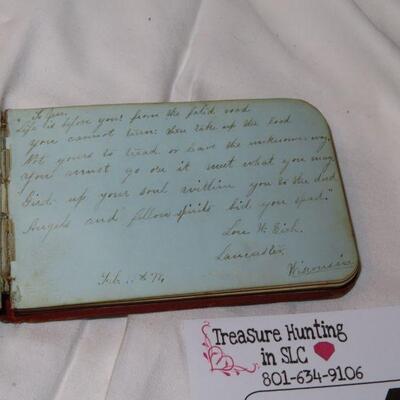 "To You.
Life is before you: from the fated road
you cannot turn: then take up the load
Not yours to tread or leave the unknown way,
you must go o'er it meet what you may
Gird up your soul within you to the deed
Angels and fellow spirits bid you speed."
Lou W.
Lancaster,
Feb.
Wisconsin
Treasure Hunting
in SLC
801-634-9106